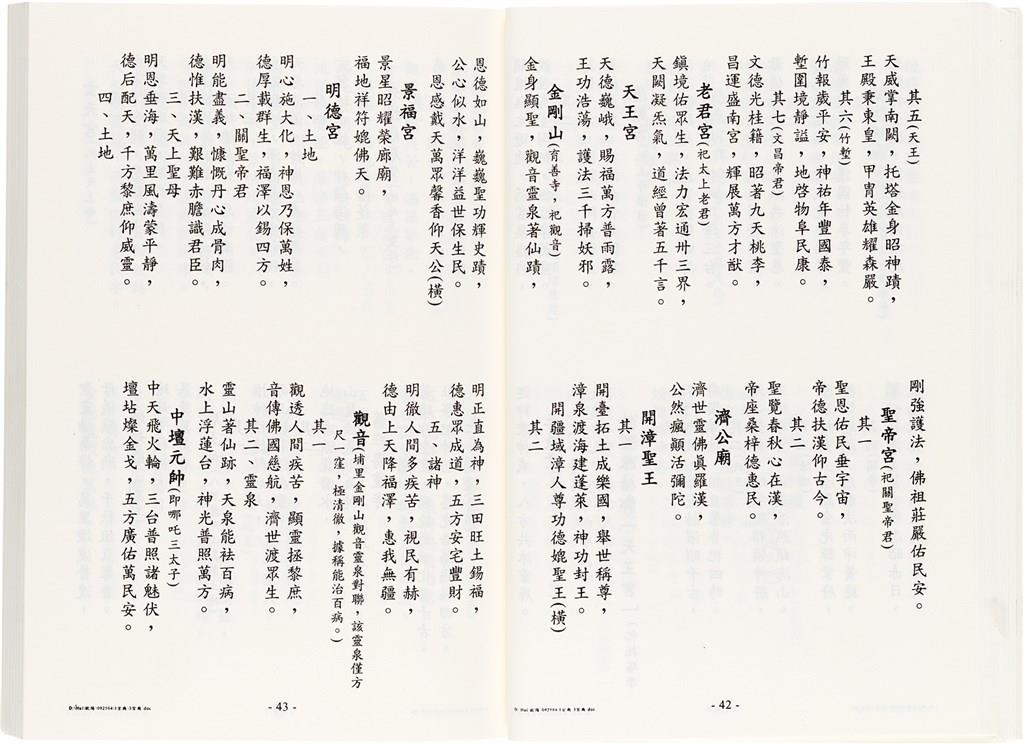 其五(天王)
天威掌南闕，托塔金身昭神蹟，
王殿秉東皇，甲冑英雄耀森嚴。
其六(竹塹)
竹報歲平安，神祐年豐國泰，
塹圍境靜謐，地啓物阜民康。
其七(文昌帝君)
文德光桂籍，昭著九天桃李，
昌運盛南宮，輝展萬方才猷。
老君宮(祀太上老君)
鎭境佑眾生，法力宏通卅三界，
天闕凝炁氣，道經曾著五千言。
天王宮
天德巍峨，賜福萬方普雨露，
王功浩蕩，護法三千掃妖邪。
金剛山(育善寺，祀觀音)
金身顯聖，觀音靈泉著仙蹟，
剛強護法，佛祖莊嚴佑民安。
聖帝宮(祀關聖帝君)
其一
聖恩佑民垂宇宙，
帝德扶漢仰古今。
其二
聖覽春秋心在漢，
帝座桑梓德惠民。
濟公廟
濟世靈佛眞羅漢，
公然瘋顚活彌陀。
開漳聖王
其一
開臺拓土成樂國，舉世稱尊，
漳泉渡海建蓬萊，神功封王。
開疆域漳人尊功德媲聖王(橫)
其二
- 42 -
恩德如山，巍巍聖功輝史蹟，
公心似水，洋洋益世保生民。
恩感戴天萬眾馨香仰天公(橫)
景福宮
景星昭耀榮廊廟，
福地祥符媲佛天。
明德宮
一、土地
明心施大化，神恩乃保萬姓，
德厚載群生，福澤以錫四方。
二、關聖帝君
明能盡義，慷慨丹心成骨肉，
德惟扶漢，艱難赤膽識君臣。
三、天上聖母
明恩垂海，萬里風濤蒙平靜，
德后配天，千方黎庶仰威靈。
四、土地
明正直為神，三田旺土錫福，
德惠眾成道，五方安宅豐財。
五、諸神
明徹人間多疾苦，視民有赫，
德由上天降福澤，惠我無疆。
觀音(埔里金剛山觀音靈泉對聯，該靈泉僅方
尺一窪，極清徹，據稱能治百病。)
其一
觀透人間疾苦，顯靈拯黎庶，
音傳佛國慈航，濟世渡眾生。
其二、靈泉
靈山著仙跡，天泉能祛百病，
水上浮蓮台，神光普照萬方。
中壇元帥(即哪吒三太子)
中天飛火輪，三台普照諸魅伏，
壇坫燦金戈，五方廣佑萬民安。
- 43 -